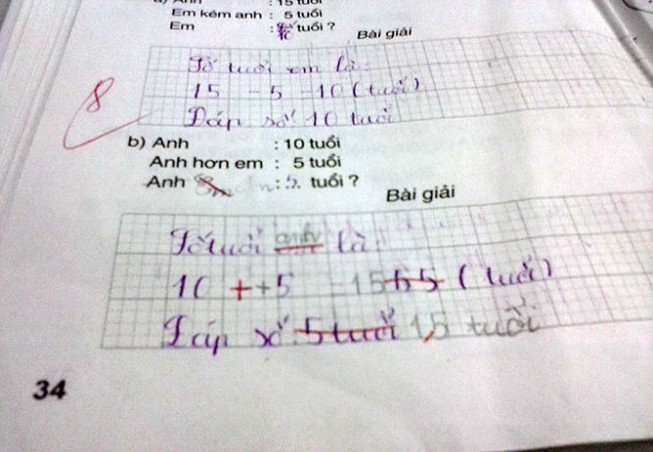 a) Anh : 15 tuổi
Em kém anh : 5 tuổi
Em : tuổi ?
Bài giải
Số tuổi em là:
15 - 5 = 10 (tuổi)
Đáp số 10 tuổi
8
b) Anh : 10 tuổi
Anh hơn em : 5 tuổi
Anh : tuổi ?
Bài giải
Số tuổi anh là:
10 + + 5 = 15 (tuổi)
Đáp số: 5 tuổi 15 tuổi
34